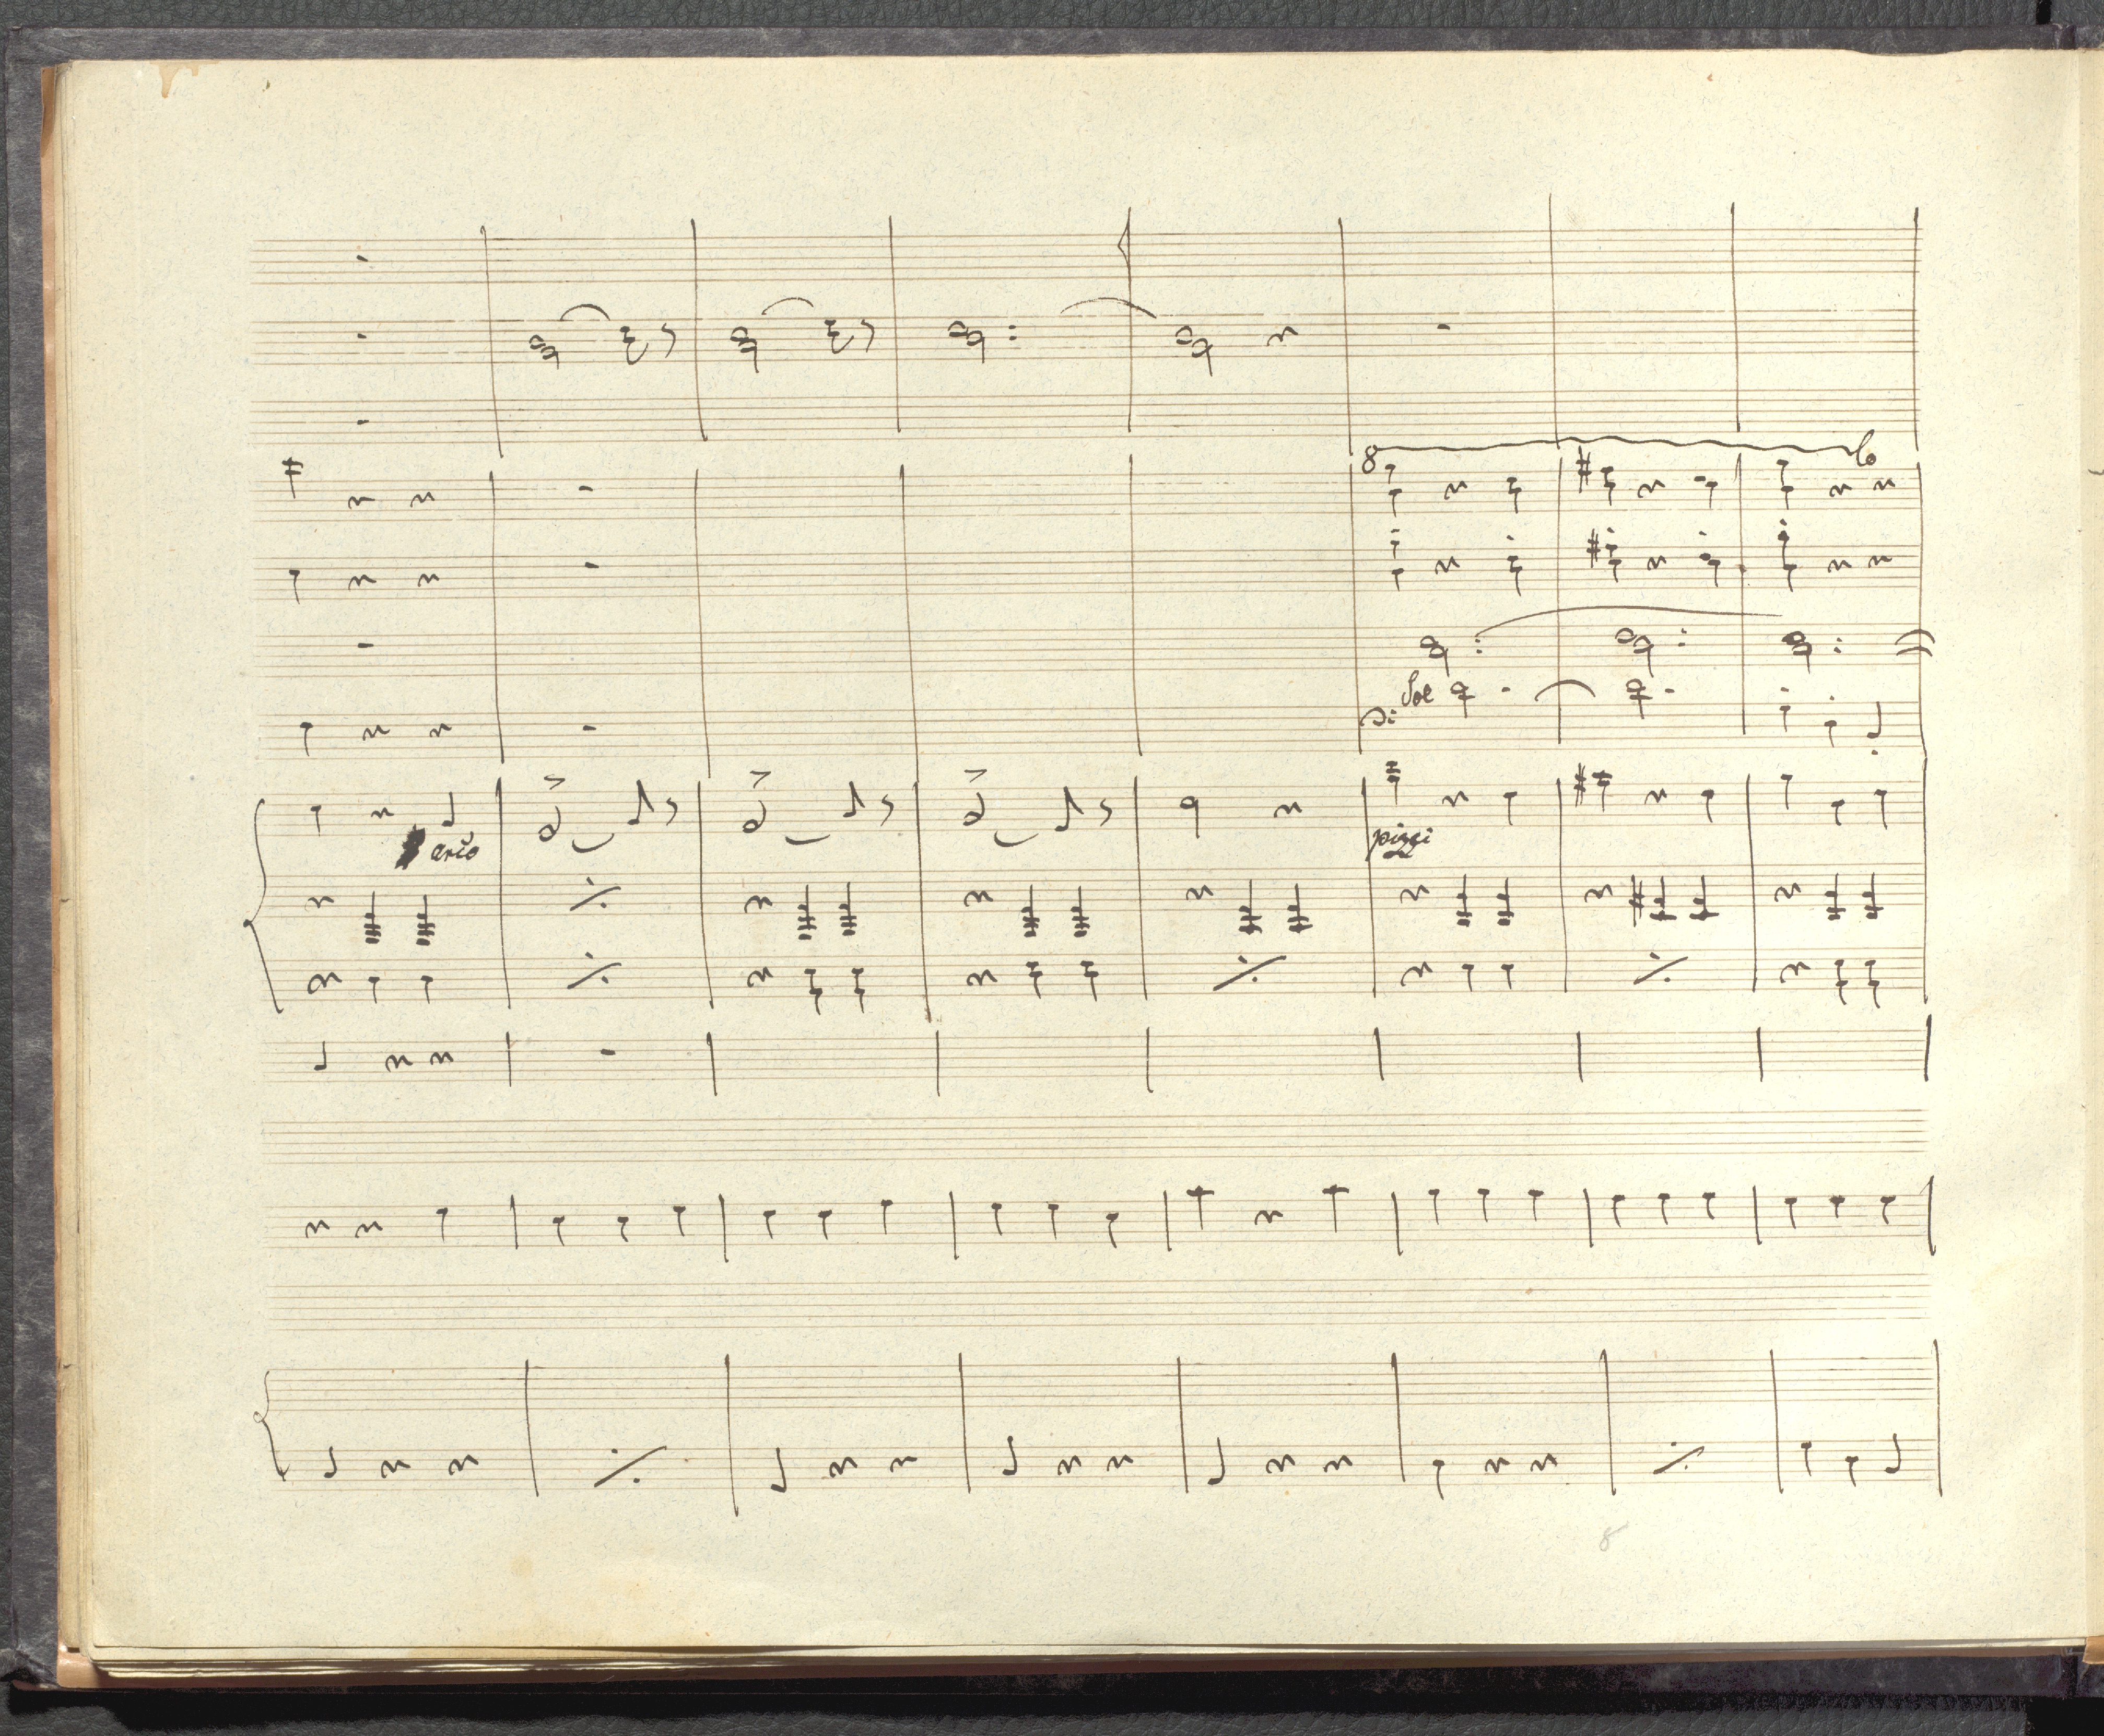 8 lo
Sol
arco
pizzi
8